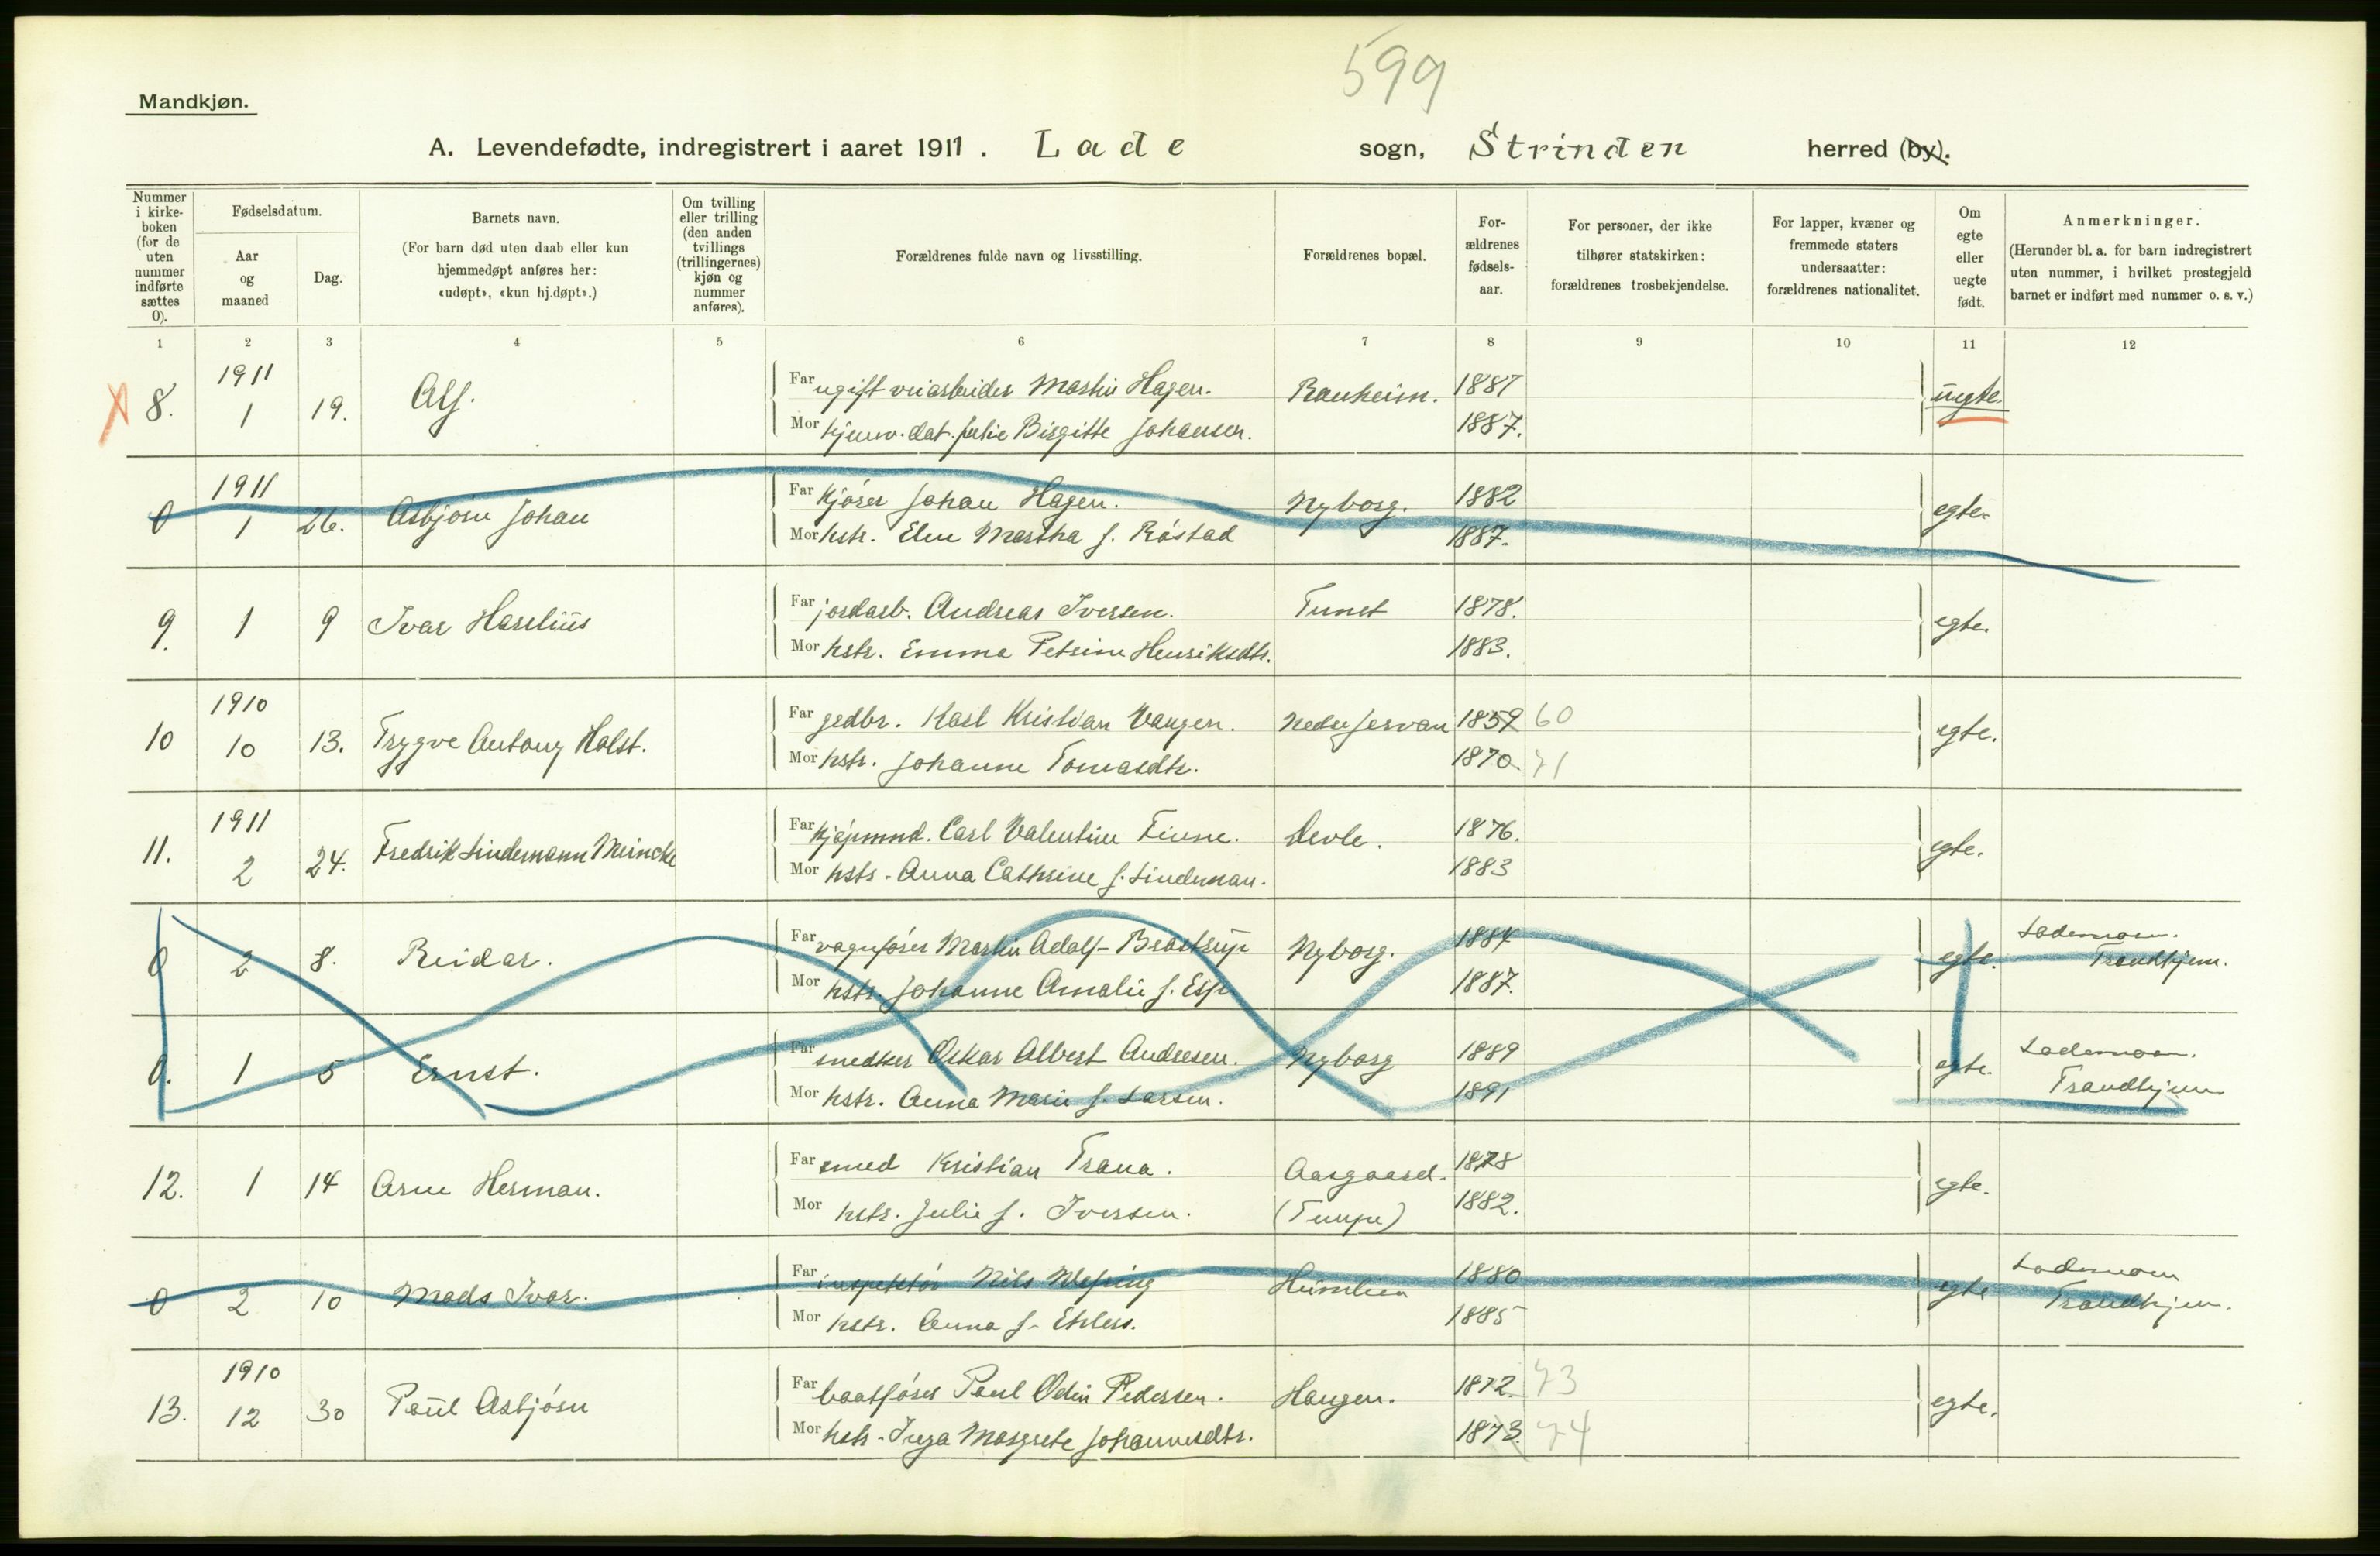 599
Mandkjøn.
A. Levendefødte, indregistrert i aaret 1911. Lade sogn, Strinden herred (by).
Nummer i kirke-boken (for de uten nummer indførte sættes 0).
Fødselsdatum.
Aar og maaned
Dag.
Barnets navn.
(For barn død uten daab eller kun hjemmedøpt anføres her: «udøpt», «kun hj.døpt».)
Om tvilling eller trilling (den anden tvillings (trillingernes) kjøn og nummer anføres).
Forældrenes fulde navn og livsstilling.
Forældrenes bopæl.
For-ældrenes fødsels-aar.
For personer, der ikke tilhører statskirken: forældrenes trosbekjendelse.
For lapper, kvæner og fremmede staters undersaatter: forældrenes nationalitet.
Om egte eller uegte født.
Anmerkninger.
(Herunder bl. a. for barn indregistrert uten nummer, i hvilket prestegjeld barnet er indført med nummer o. s. v.)
1 2 3 4 5 6 7 8 9 10 11 12
8. 1911 1 19. Alf. Far ugift veiarbeider Martin Hagen. Ranheim. 1887 uegte.
Mor hjemv. dat. Julie Birgitte Johansen. 1887.
0 1911 1 26. Asbjørn Johan Far Kjører Johan Hagen. Nyborg. 1882 egte.
Mor hstr. Elen Martha f. Røstad 1887.
9. 1 9 Ivar Harelius Far jordarb. Andreas Iversen. Tunet 1878. egte.
Mor hstr. Emma Petrine Henriksdtr. 1883.
10 1910 10 13. Trygve Antony Holst. Far gedbr. Karl Kristian Vangen. Nedre Jervan 1859 60 egte.
Mor hstr. Johanne Tomasdtr. 1870. 71
11. 1911 2 24. Fredrik Lindemann Meincke Far kjøpmnd. Carl Valentin Finne. Devle. 1876. egte.
Mor hstr. Anna Cathrine f. Lindeman. 1883
0 2 8. Reidar. Far vognfører Martin Adolf Nyborg. 1884 egte. Lademoen. Trondhjem.
Mor hstr. Johanne Amalie f. Esp 1887.
0. 1 5 Ernst. Far snedker Oskar Albert Andresen. Nyborg 1889 egte. Lademoen. Trondhjem
Mor hstr. Anna Marie f. Larsen. 1891
12. 1 14 Arne Herman. Far smed Kristian Trana. Aargaard. 1878 egte.
Mor hstr. Julie f. Iversen. 1882.
0 2 10 Mads Ivar. Far inspektør Nils Humlien 1880 egte Lademoen Trondhjem.
Mor hstr. Anna f. Ehlers. 1885
13. 1910 12 30 Paul Asbjørn Far baatfører Paul Odin Pedersen. Haugen. 1872. 73 egte.
Mor hstr. Inga Margrete Johannesdtr. 1873. 74